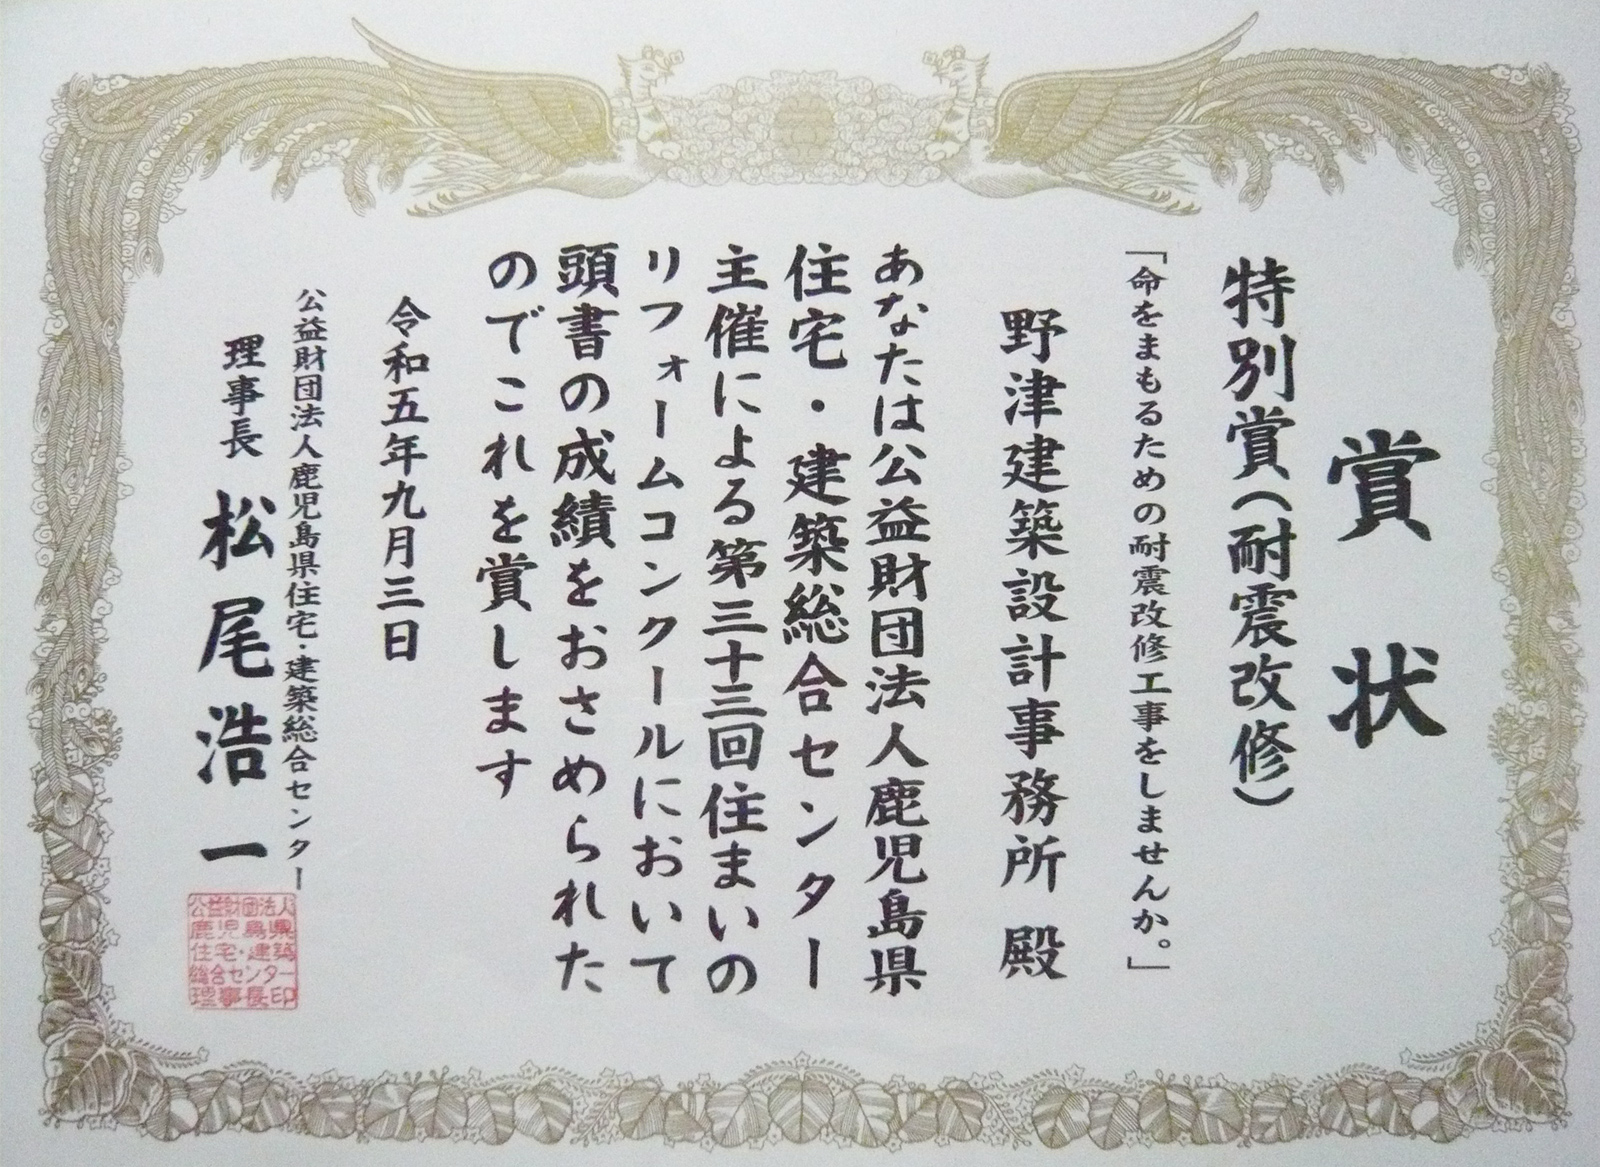 賞状
特別賞(耐震改修)
「命をまもるための耐震改修工事をしませんか。」
野津建築設計事務所 殿
あなたは公益財団法人鹿児島県
住宅・建築総合センター
主催による第三十三回住まいの
リフォームコンクールにおいて
頭書の成績をおさめられた
のでこれを賞します
令和五年九月三日
公益財団法人鹿児島県住宅・建築総合センター
理事長 松尾浩一
公益財団法人
鹿児島県
住宅・建築
総合センター
理事長印